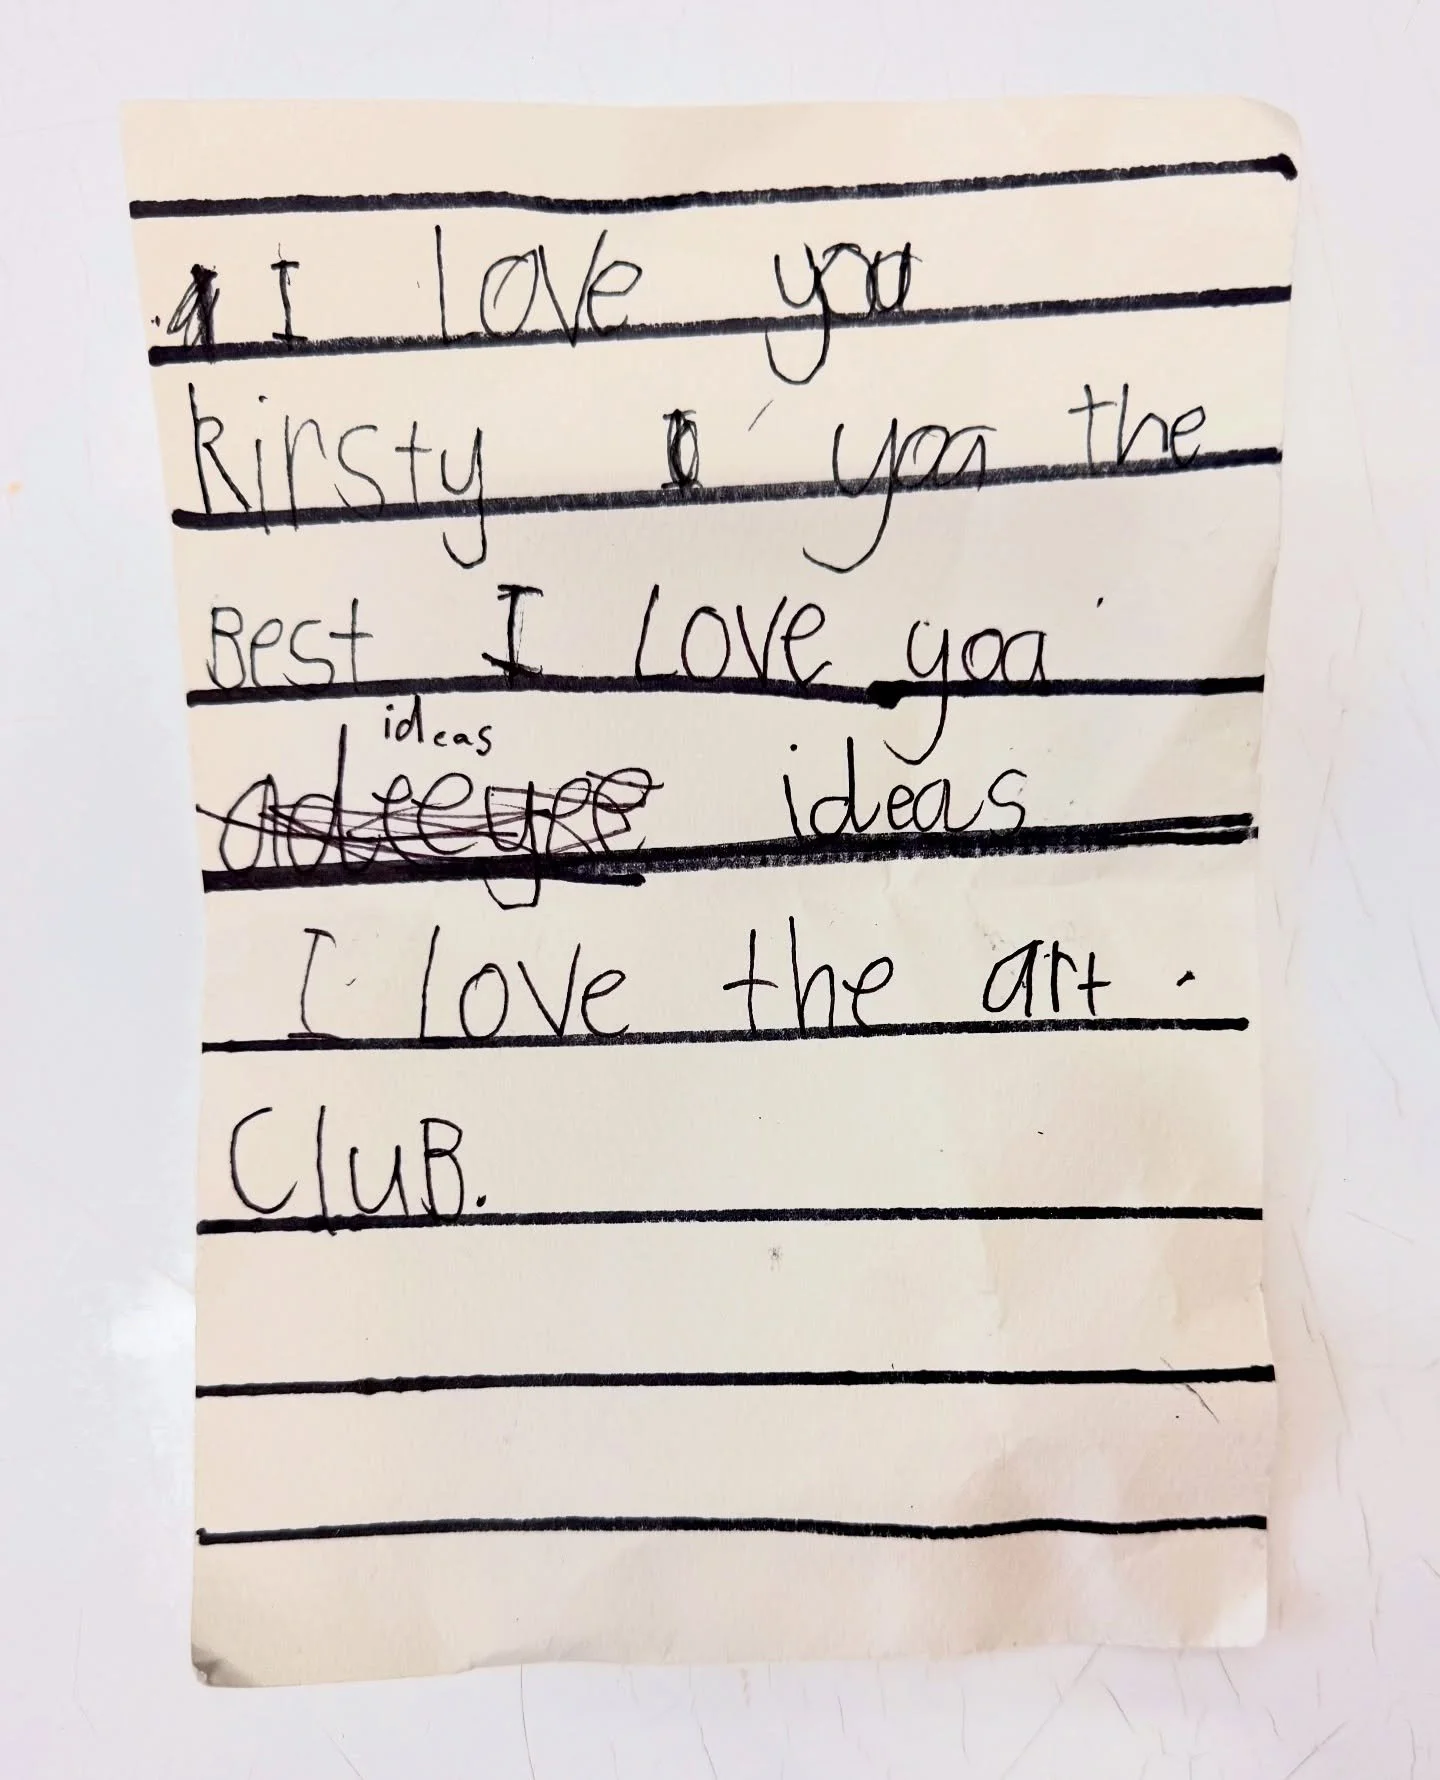 I love you
kirsty yoa the
Best I Love yoa
ideas
ideas
I love the art.
CluB.